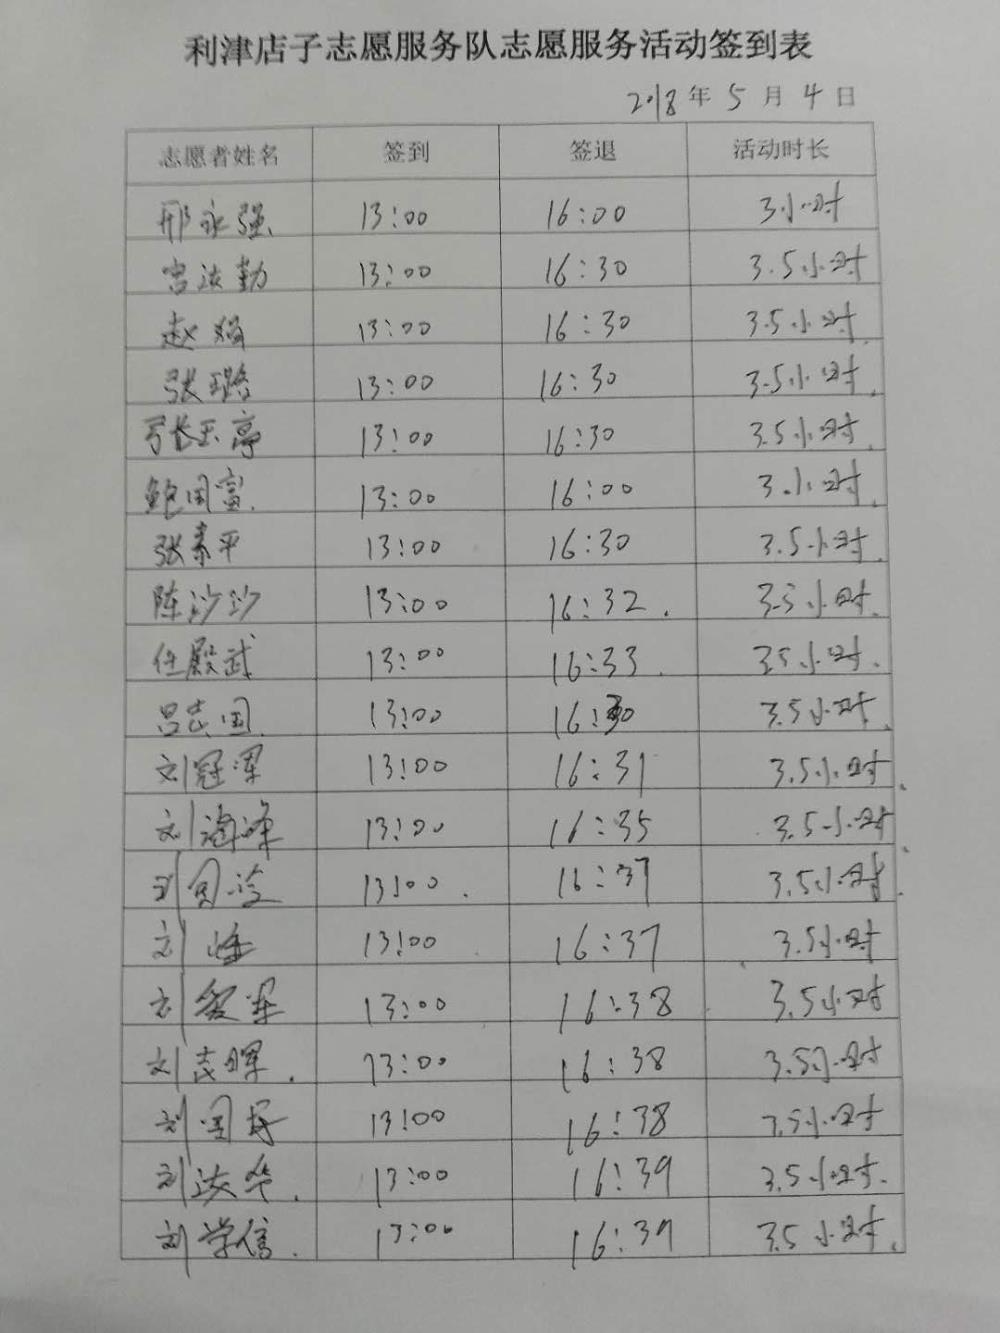 利津店子志愿服务队志愿服务活动签到表
2018年5月4日
志愿者姓名 签到 签退 活动时长
邢永强 13:00 16:00 3小时
宫法勤 13:00 16:30 3.5小时
赵娟 13:00 16:30 3.5小时
张璐 13:00 16:30 3.5小时
张玉亭 13:00 16:30 3.5小时
鲍国富 13:00 16:00 3小时
张素平 13:00 16:30 3.5小时
陈沙沙 13:00 16:32 3.5小时
任殿武 13:00 16:33 3.5小时
吕志国 13:00 16:30 3.5小时
刘冠军 13:00 16:31 3.5小时
刘海峰 13:00 16:35 3.5小时
刘 13:00 16:37 3.5小时
刘峰 13:00 16:37 3.5小时
刘爱军 13:00 16:38 3.5小时
刘志晖 13:00 16:38 3.5小时
刘国 13:00 16:38 3.5小时
刘法华 13:00 16:39 3.5小时
刘学信 13:00 16:39 3.5小时